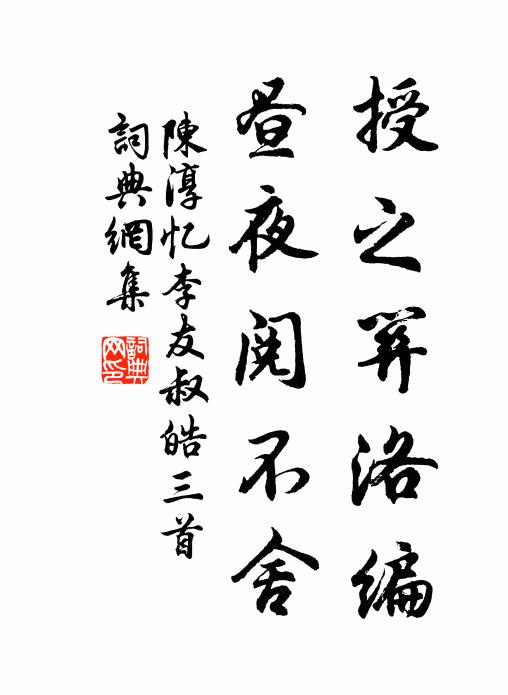 授之關洛編
昼夜閱不舍
陳淳忆李友叔皓三首
詞典網集
詞典网印